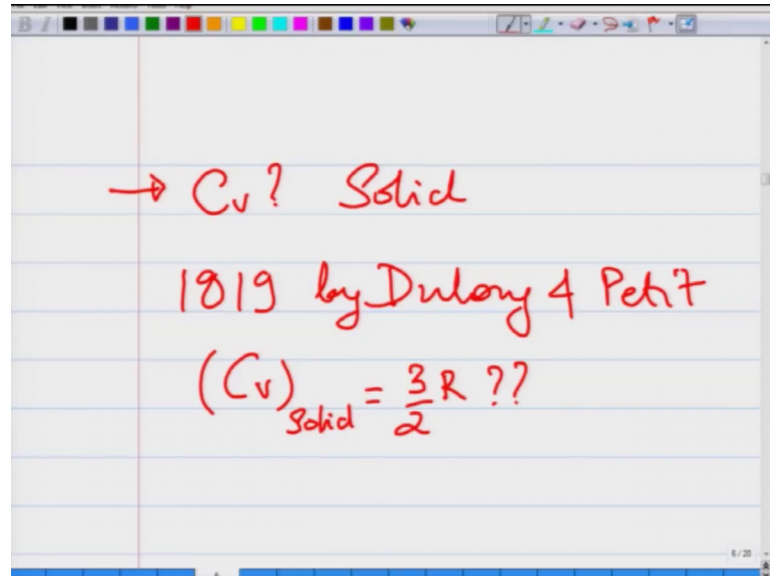 → Cv? Solid
1819 by Dulong & Petit
(Cv)Solid = 3/2 R ??
6/20